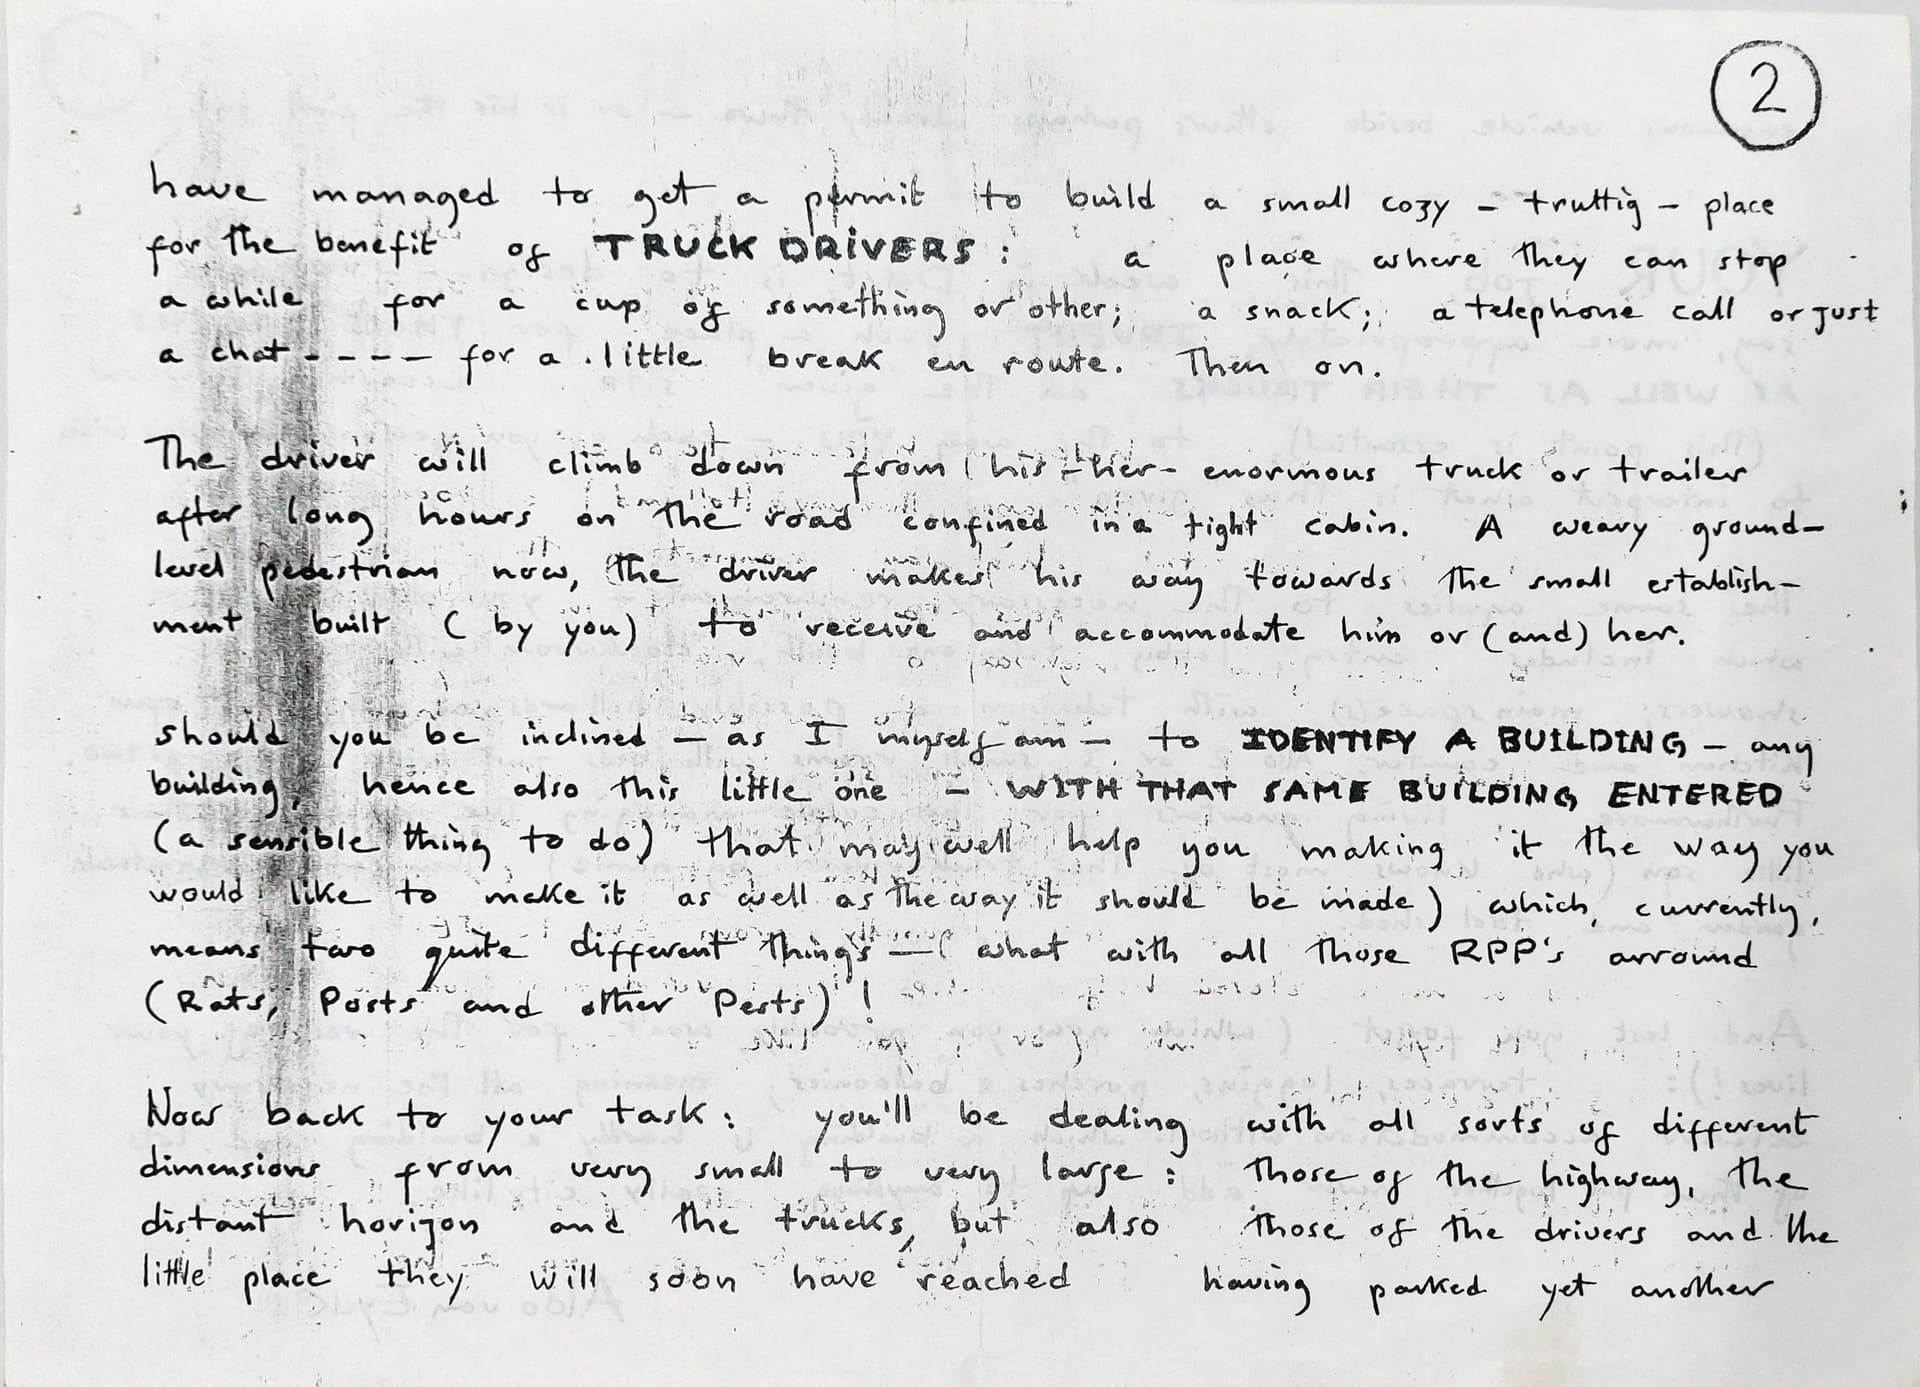 2
have managed to get a permit to build a small cozy – truttig – place
for the benefit of TRUCK DRIVERS : a place where they can stop
a while for a cup of something or other; a snack; a telephone call or just
a chat - - - - for a little break en route. Then on.
The driver will climb down from his -her- enormous truck or trailer
after long hours on the road confined in a tight cabin. A weary ground-
level pedestrian now, the driver makes his way towards the small establish-
ment built (by you) to receive and accommodate him or (and) her.
should you be inclined – as I myself am – to IDENTIFY A BUILDING – any
building, hence also this little one – WITH THAT SAME BUILDING ENTERED
(a sensible thing to do) that may well help you making it the way you
would like to make it as well as the way it should be made) which, currently,
means two quite different things – (what with all those RPP's arround
(Rats, Posts and other Pests) !
Now back to your task : you'll be dealing with all sorts of different
dimensions from very small to very large : those of the highway, the
distant horizon and the trucks, but also those of the drivers and the
little place they will soon have reached having parked yet another